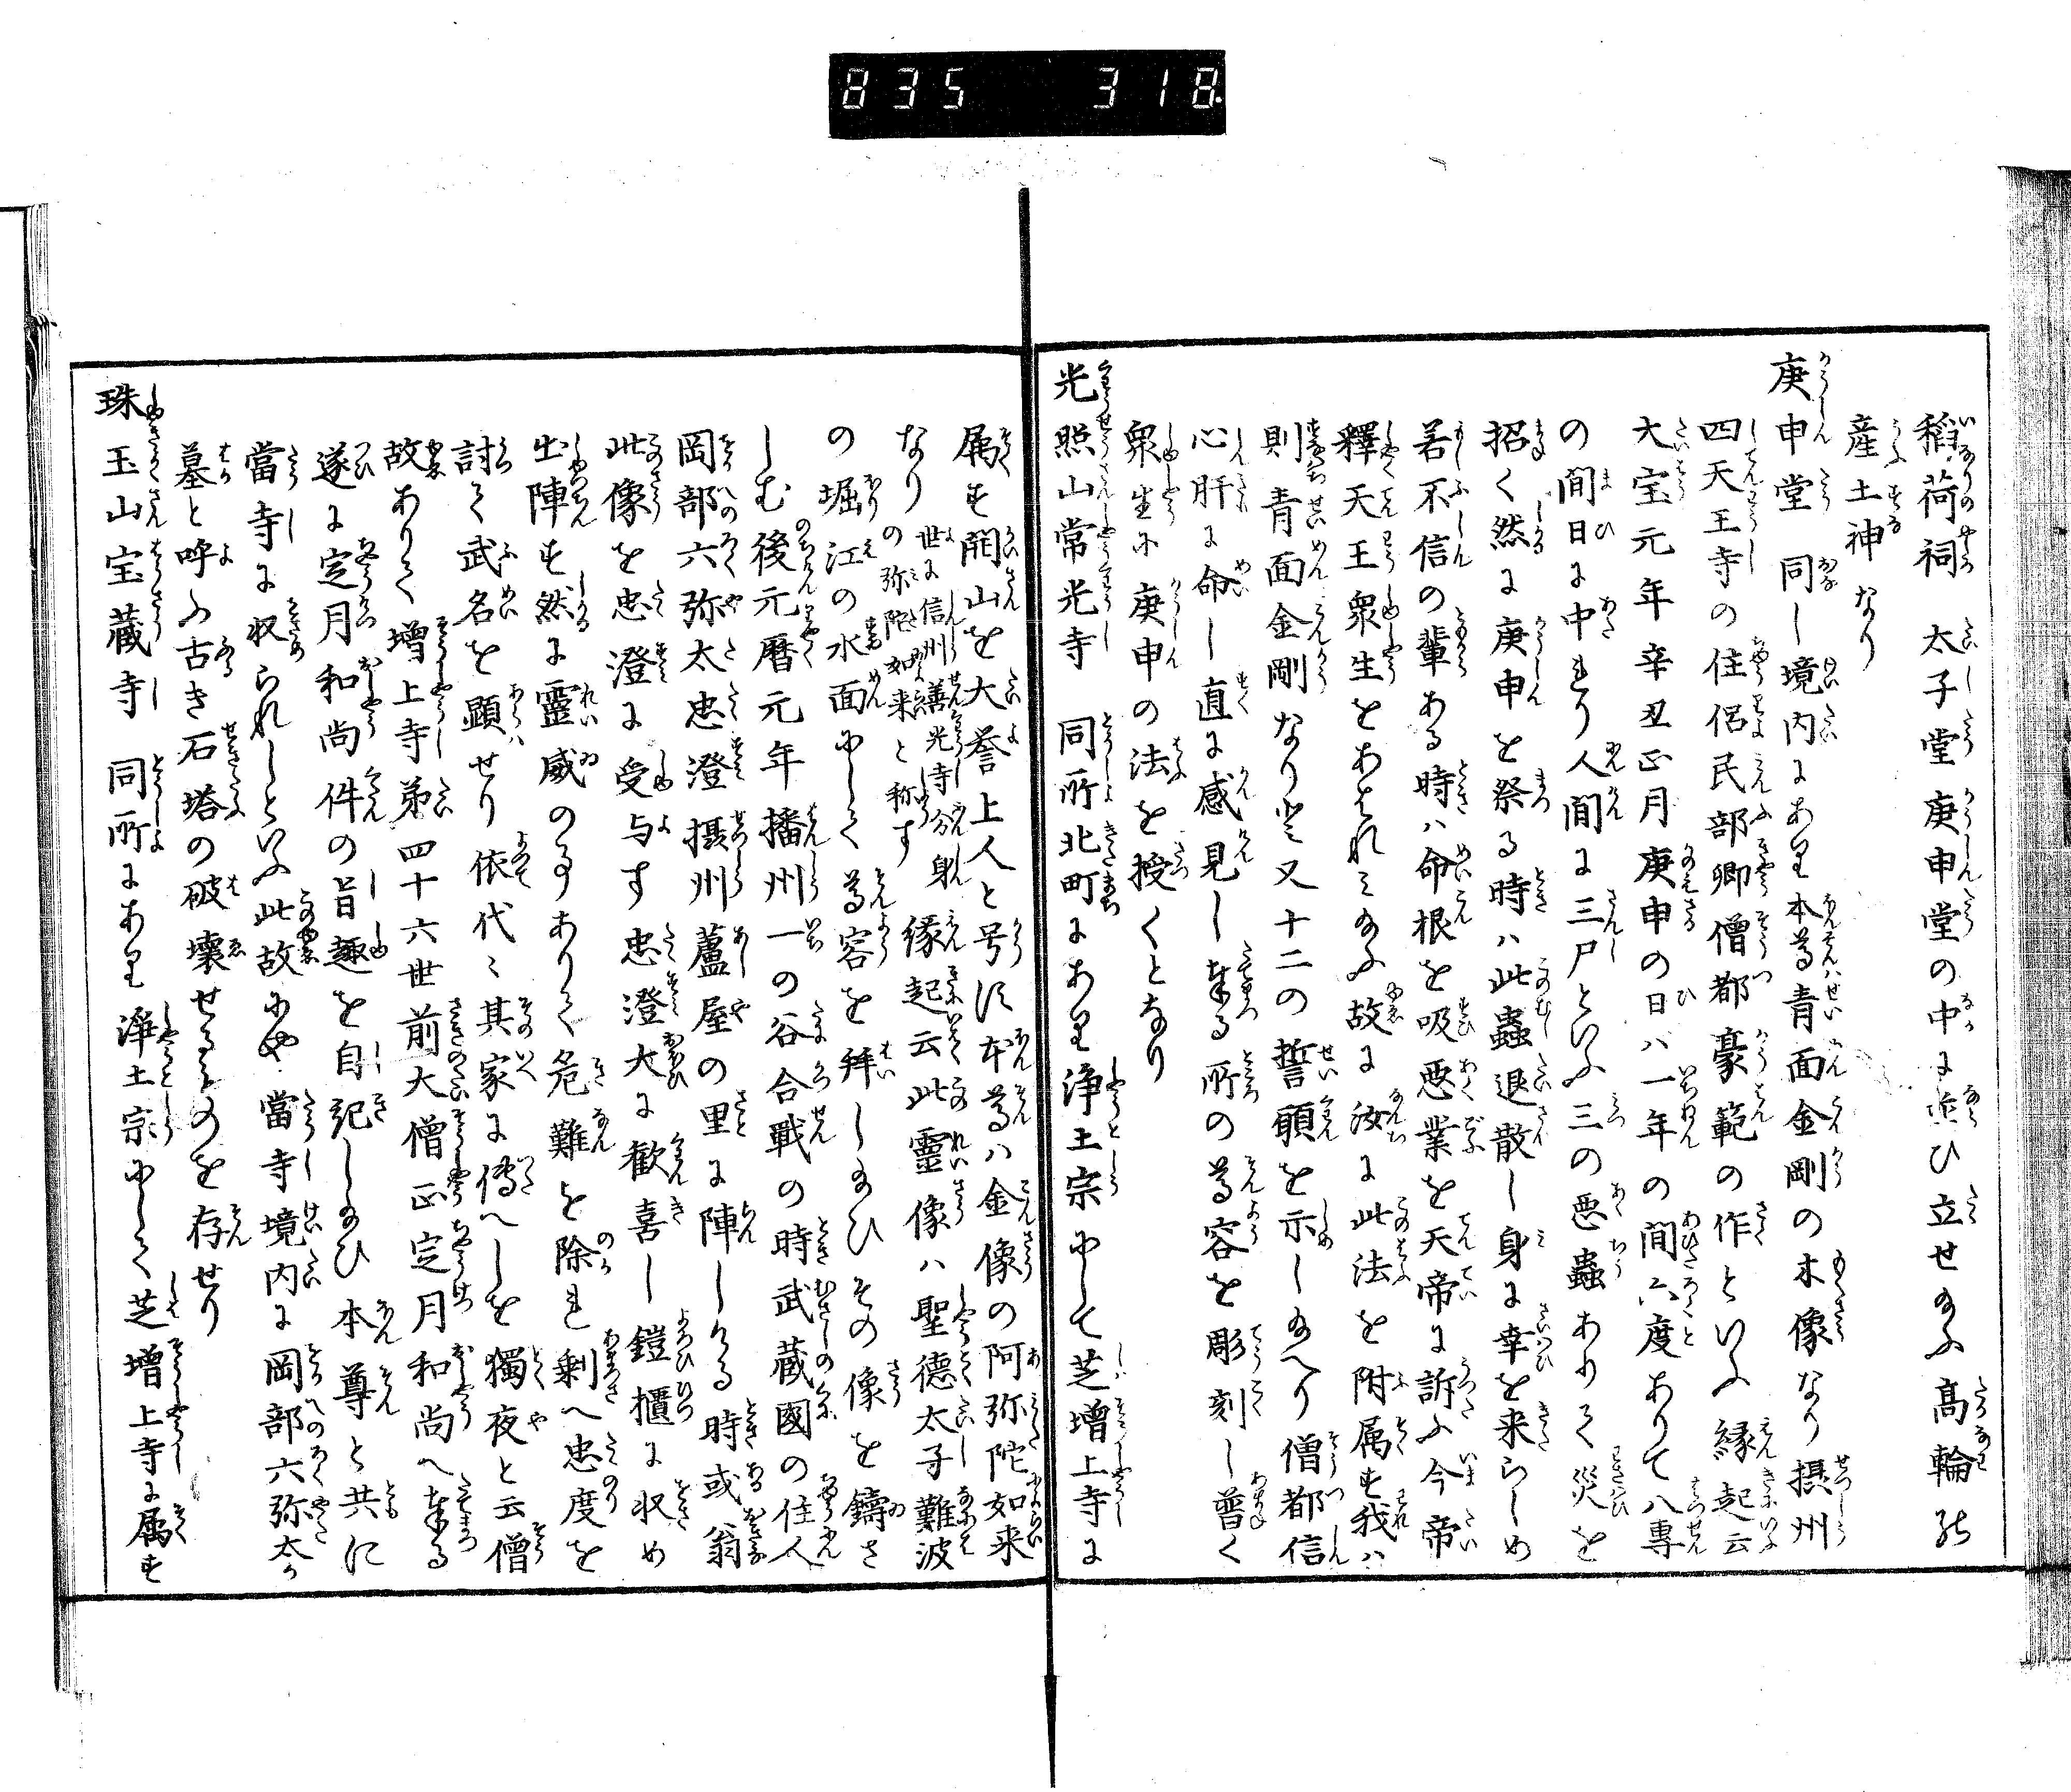 835 318
稲荷祠 太子堂庚申堂の中に並ひ立せ給ふ高輪の
産土神なり
庚申堂 同し境内にあり本尊ハ青面金剛の木像なり摂州
四天王寺の住侶民部卿僧都豪範の作といふ縁起云
大宝元年辛丑正月庚申の日ハ一年の間六度ありて八専
の間日に中れり人間に三尸といふ三の悪蟲ありて災を
招く然に庚申を祭る時ハ此蟲退散し身に幸を来らしめ
若不信の輩ある時ハ命根を吸悪業を天帝に訴ふ今帝
釋天王衆生をあはれみ給ふ故に汝に此法を附属す我ハ
則青面金剛なりと又十二の誓願を示し給へり僧都信
心肝に命し直に感見し奉る所の尊容を彫刻し普く
衆生に庚申の法を授くとなり
光照山常光寺 同所北町にあり浄土宗にして芝増上寺に
属す開山を大誉上人と号す本尊ハ金像の阿弥陀如来
なり 世に信州善光寺分身の弥陀如来と称す 縁起云此霊像ハ聖徳太子難波
の堀江の水面にして尊容を拜し給ひその像を鋳さ
しむ後元暦元年播州一の谷合戦の時武蔵國の住人
岡部六弥太忠澄摂州蘆屋の里に陣しける時或翁
此像を忠澄に受与す忠澄大に歓喜し鎧櫃に収め
出陣す然に靈威の事ありて危難を除れ剰へ忠度を
討て武名を顕せり依代々其家に傳へしを獨夜と云僧
故ありて増上寺第四十六世前大僧正定月和尚へ奉る
遂に定月和尚件の旨趣を自記し給ひ本尊と共に
當寺に収られしといふ此故にや當寺境内に岡部六弥太か
墓と呼ふ古き石塔の破壊せるものを存せり
珠玉山宝蔵寺 同所にあり浄土宗にして芝増上寺に属す